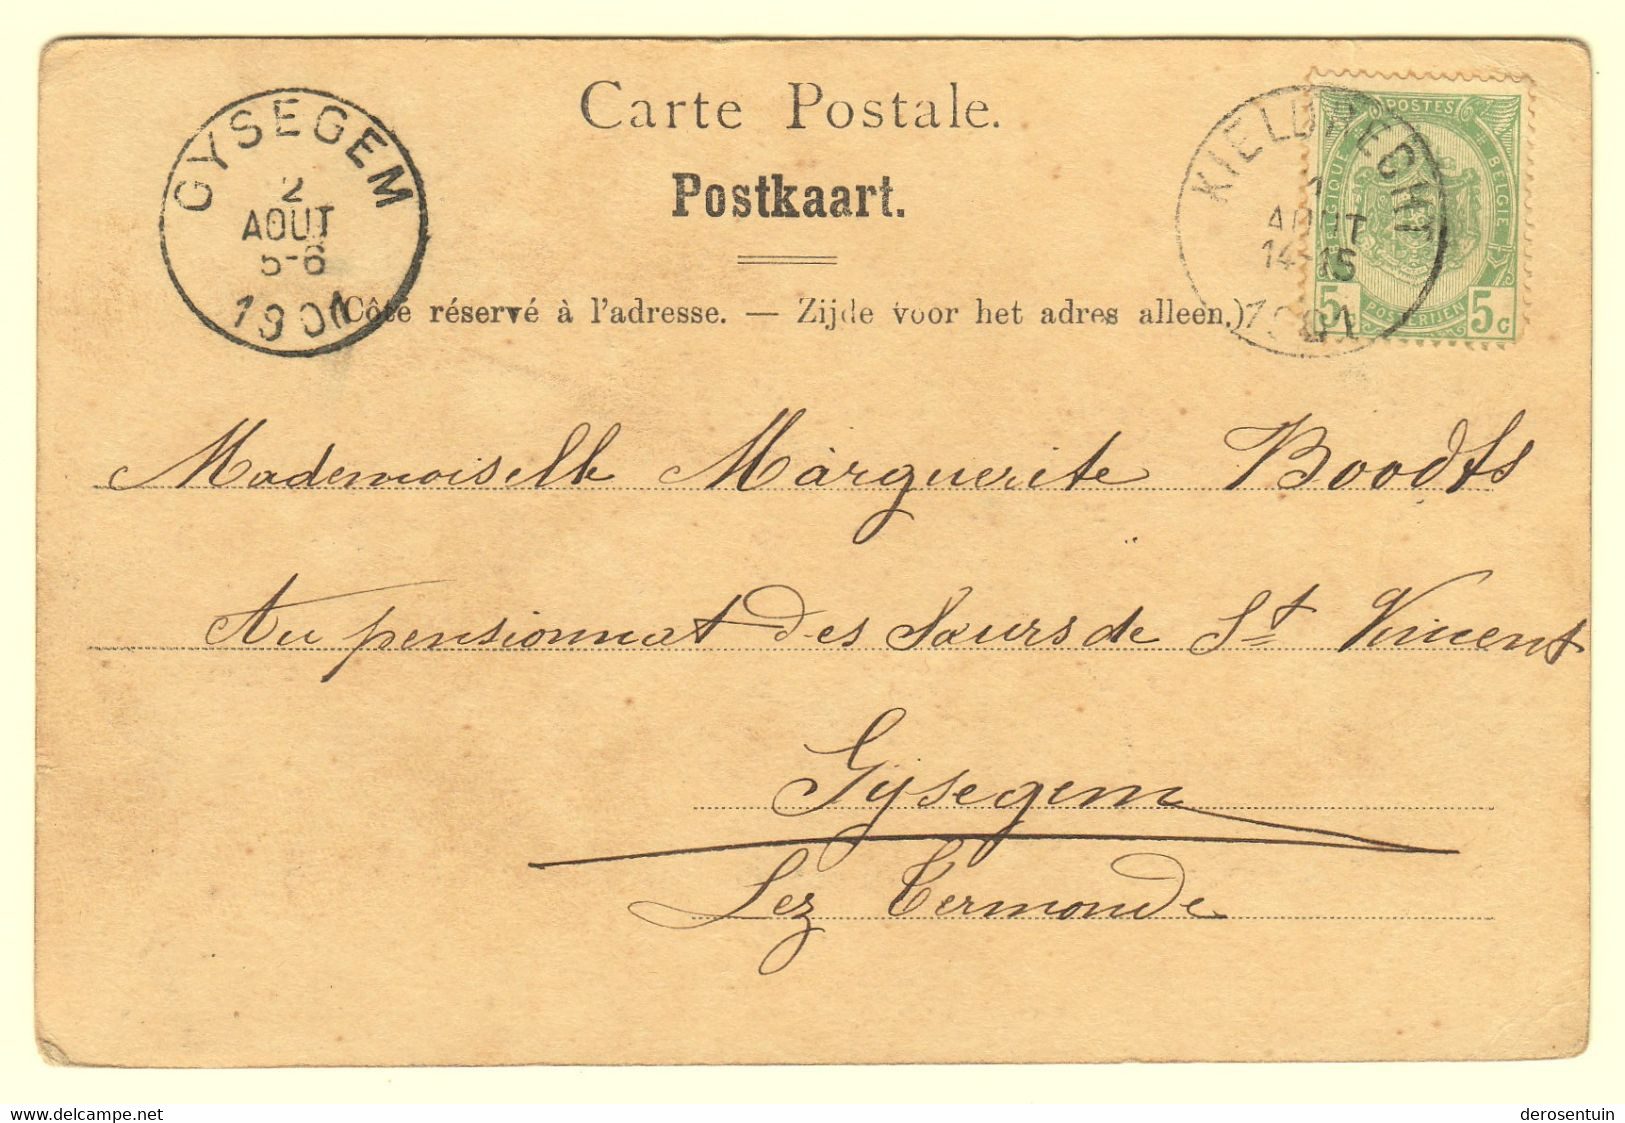 Carte Postale.
Postkaart.
(Côté réservé à l'adresse. — Zijde voor het adres alleen.)
GYSEGEM
2
AOUT
5-6
1901
KIELDRECHT
1
AOUT
14-15
1901
POSTES
BELGIQUE
BELGIE
POSTERIJEN
5c
Mademoiselle Marguerite Boodts
Au pensionnat des Sœurs de St Vincent
Gysegem
Lez Termonde
delcampe.net
derosentuin